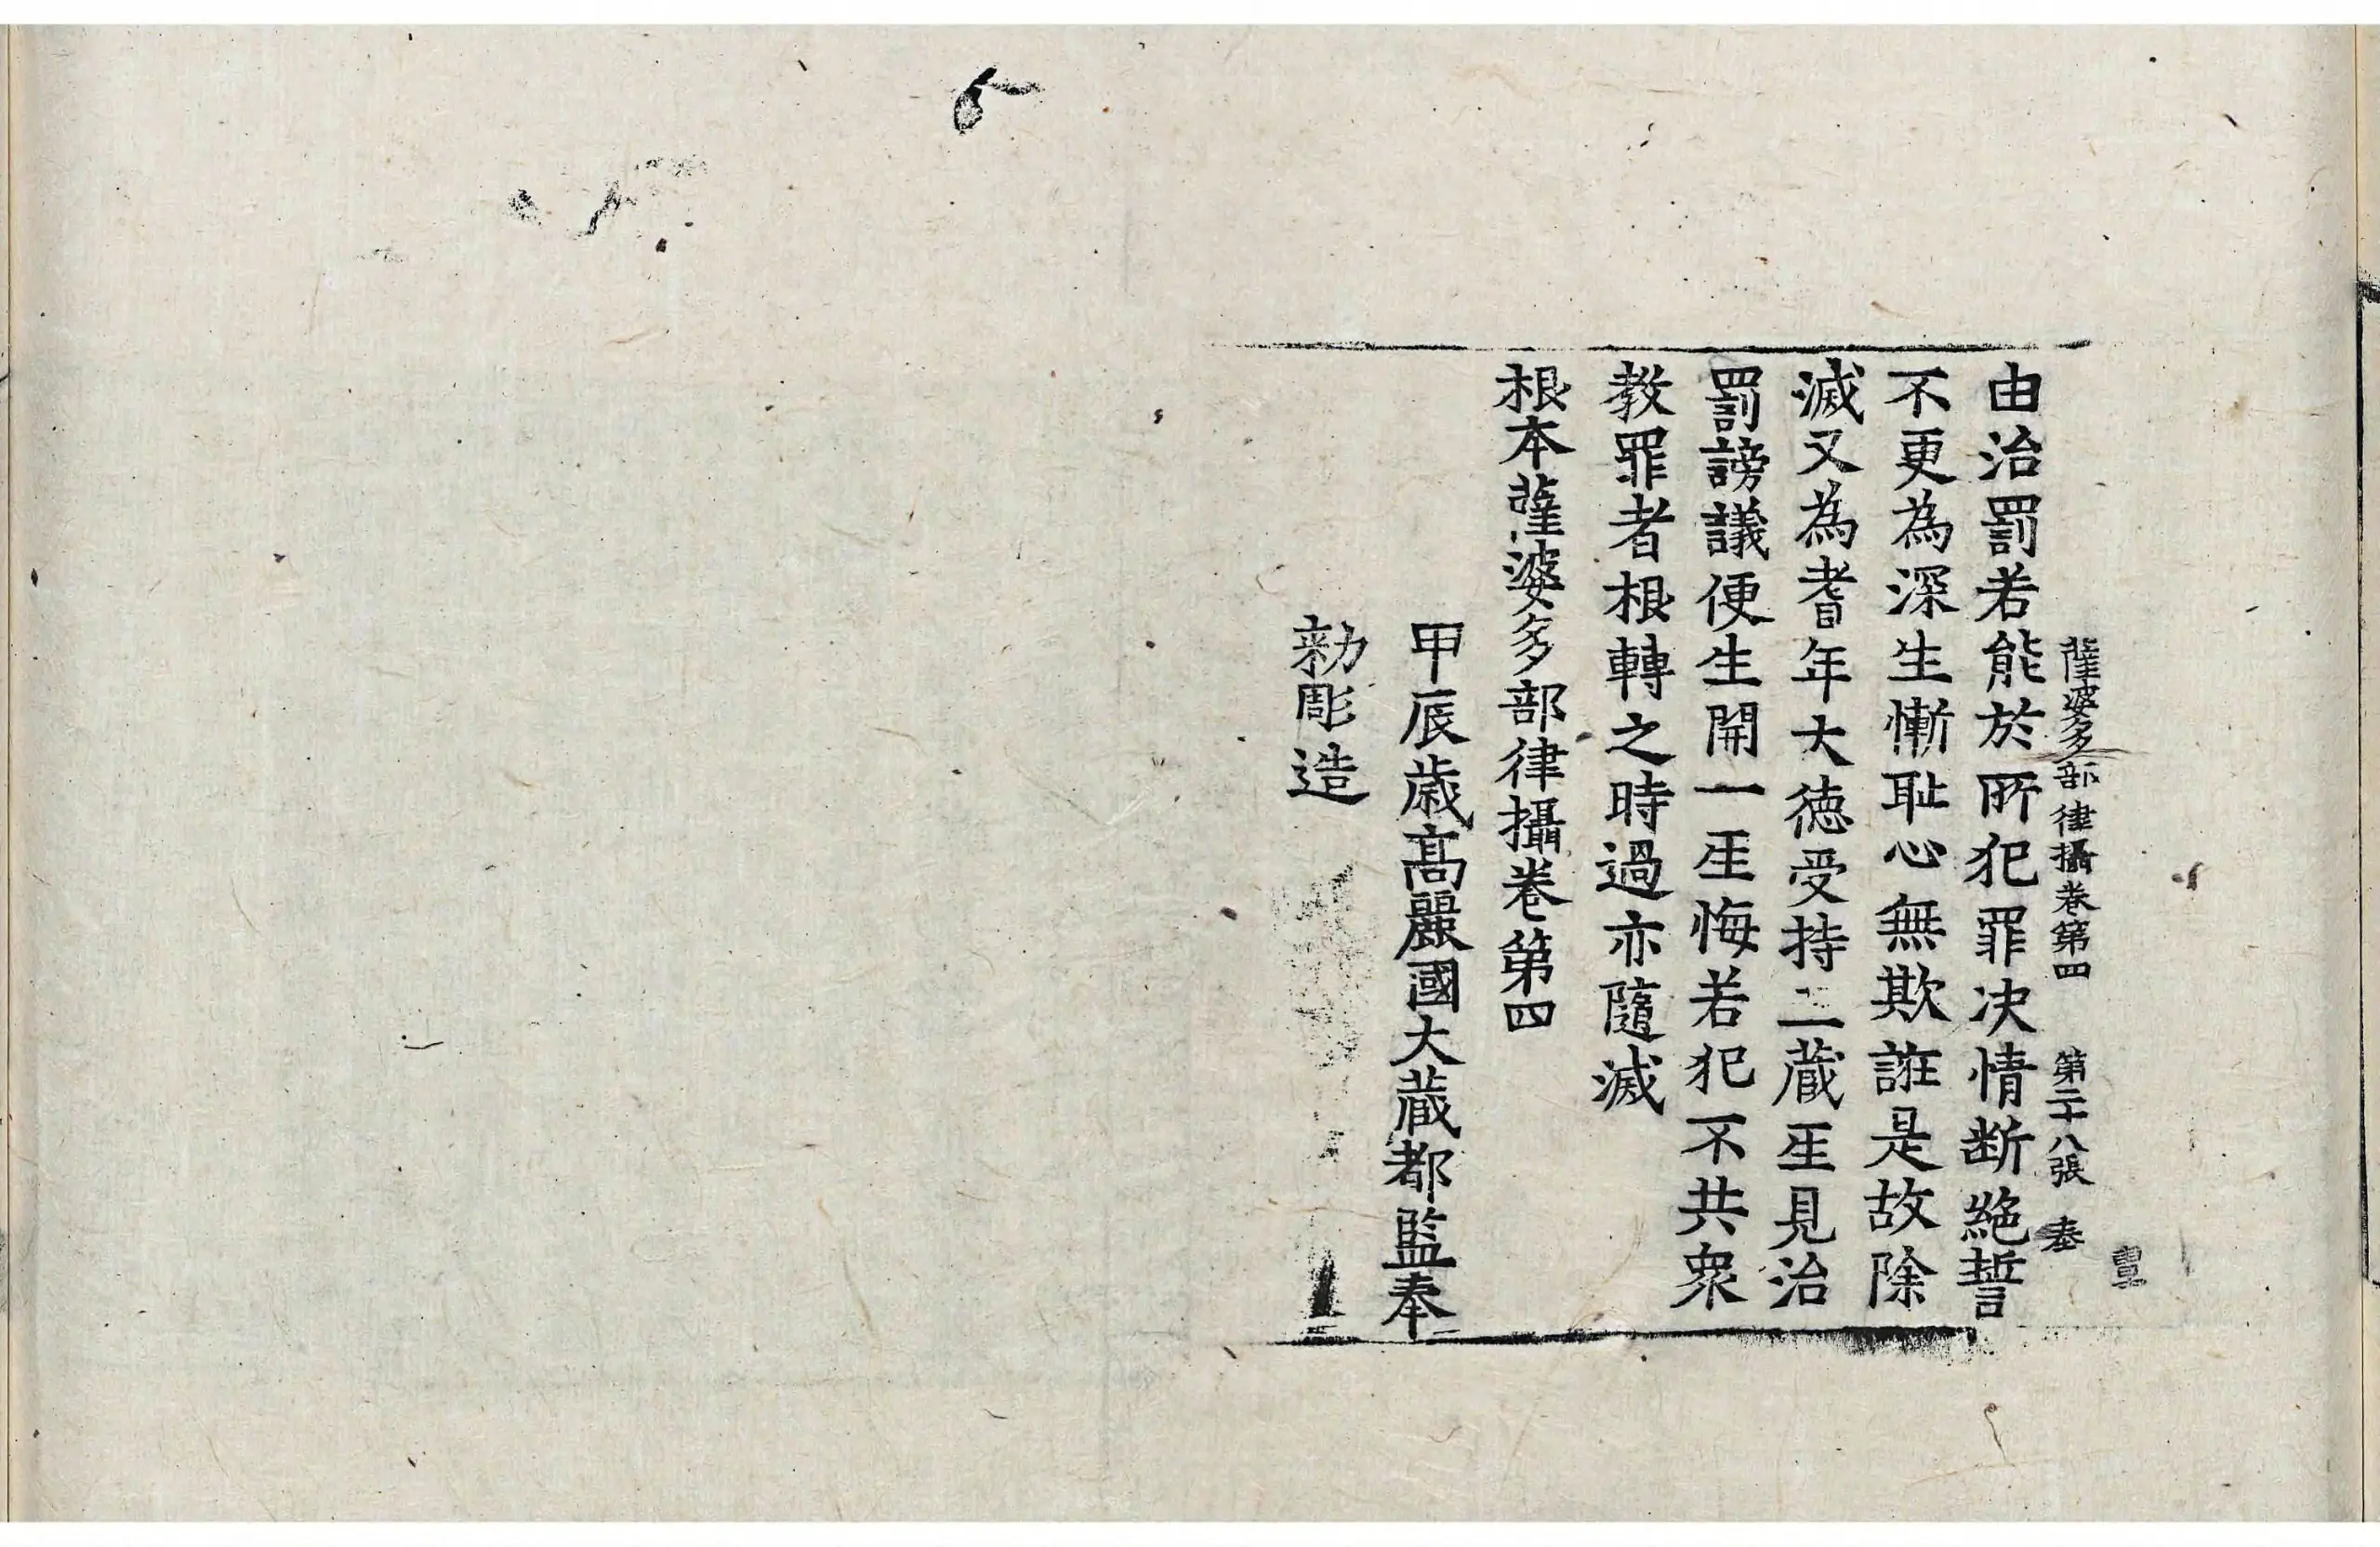 薩婆多部律攝卷第四 第二十八張
由治罰若能於所犯罪决情断絶誓
不更為深生慚耻心無欺誑是故除
滅又為耆年大徳受持三蔵𤯔見治
罰謗議便生開一𤯔悔若犯不共衆
教罪者根轉之時過亦隨滅
根本薩婆多部律攝卷第四
甲辰歳髙麗國大蔵都監奉
勑彫造